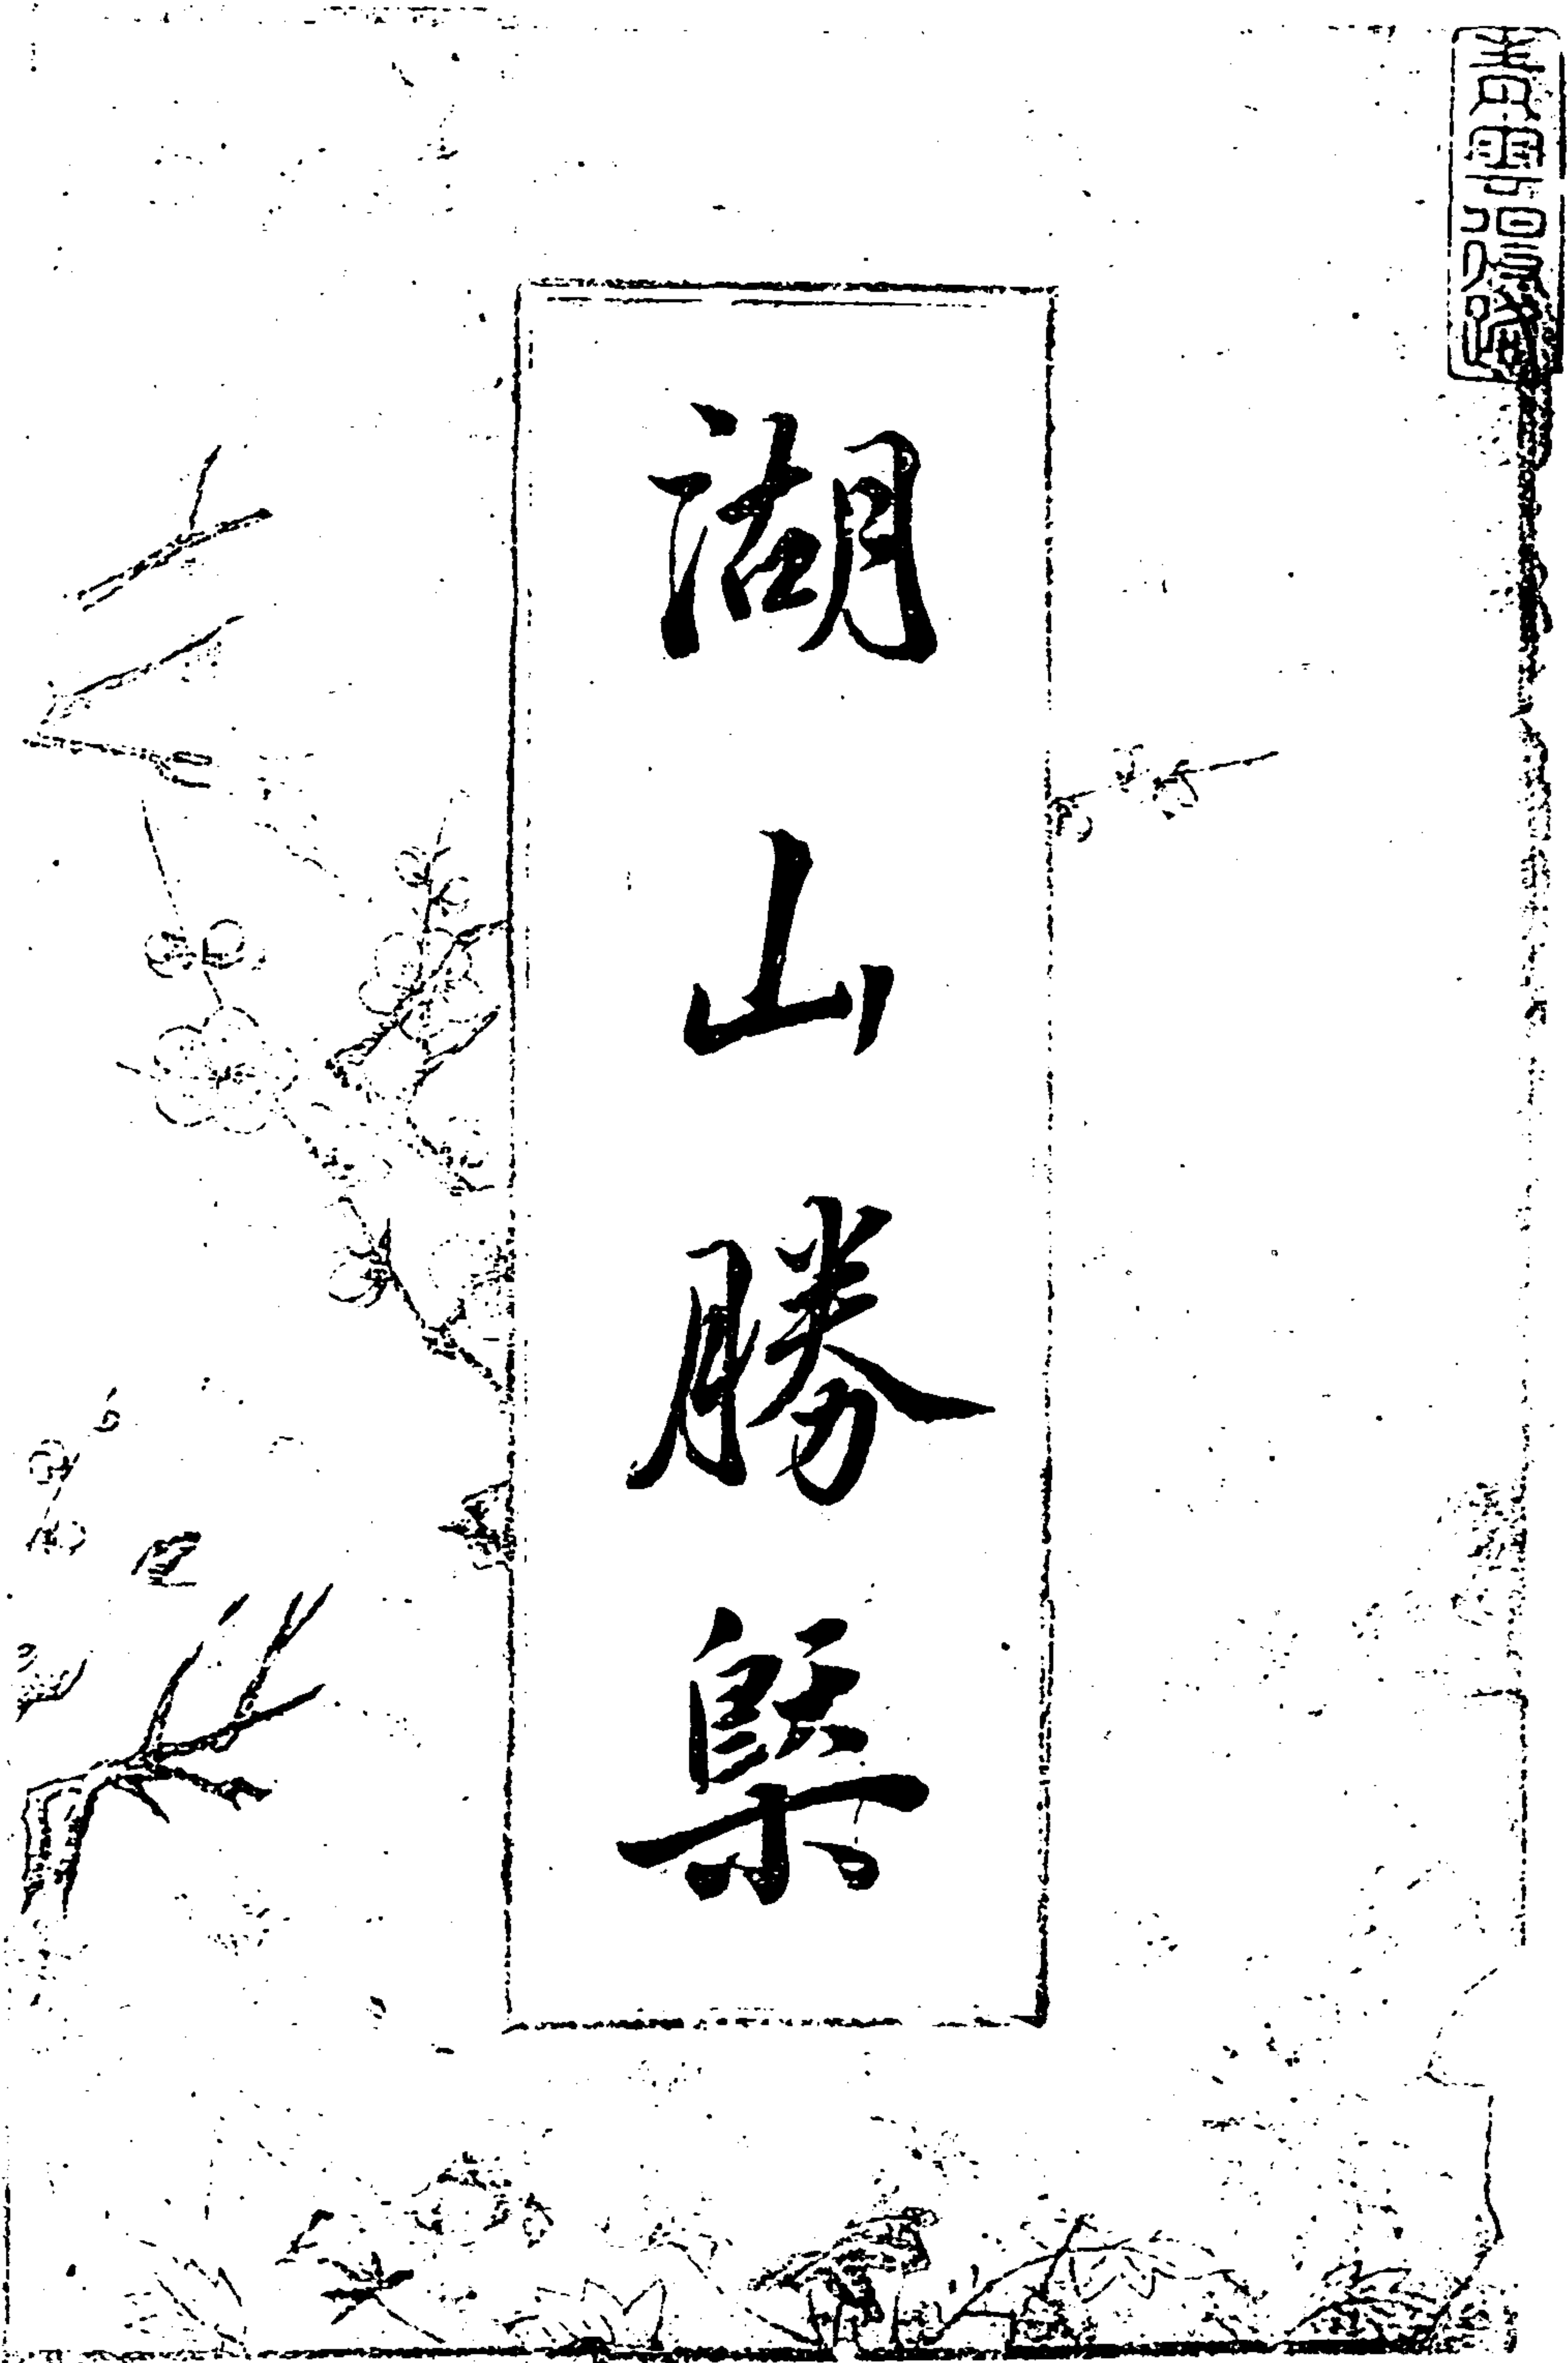 青雲得路
湖山勝槩